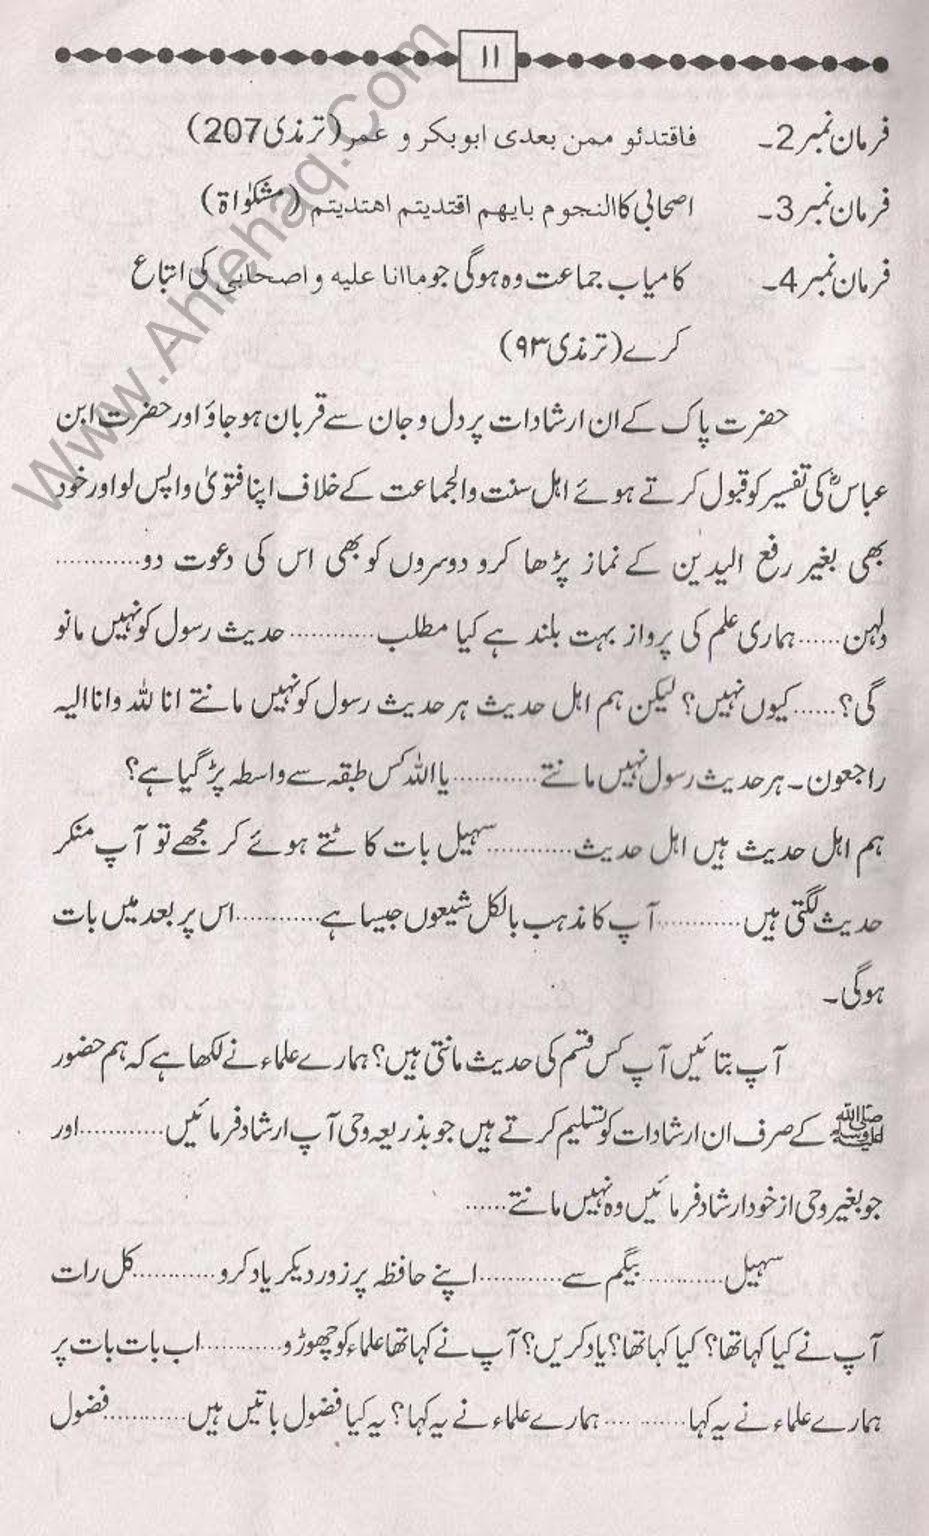 ۱۱
فرمان نمبر 2۔ فاقتدئو ممن بعدی ابوبکر و عمر (ترمذی 207)
فرمان نمبر 3۔ اصحابی کاالنجوم بایهم اقتدیتم اهتدیتم (مشکوٰاۃ)
فرمان نمبر 4۔ کامیاب جماعت وہ ہوگی جو ماانا علیه و اصحابی کی اتباع
کرے (ترمذی ۹۳)
حضرت پاک کے ان ارشادات پر دل و جان سے قربان ہو جاؤ اور حضرت ابن
عباسؓ کی تفسیر کو قبول کرتے ہوئے اهل سنت والجماعت کے خلاف اپنا فتویٰ واپس لو اور خود
بھی بغیر رفع الیدین کے نماز پڑھا کرو دوسروں کو بھی اس کی دعوت دو............
دلہن...... ہماری علم کی پرواز بہت بلند ہے کیا مطلب............ حدیث رسول کو نہیں مانو
گی؟...... کیوں نہیں؟ لیکن ہم اهل حدیث ہر حدیث رسول کو نہیں مانتے انا للہ وانا الیہ
راجعون۔ ہر حدیث رسول نہیں مانتے............ یا اللہ کس طبقہ سے واسطہ پڑ گیا ہے؟
ہم اهل حدیث ہیں اهل حدیث............ سہیل بات کاٹتے ہوئے کر مجھے تو آپ منکر
حدیث لگتی ہیں............ آپ کا مذہب بالکل شیعوں جیسا ہے............ اس پر بعد میں بات
ہوگی۔
آپ بتائیں آپ کس قسم کی حدیث مانتی ہیں؟ ہمارے علماء نے لکھا ہے کہ ہم حضور
ﷺ کے صرف ان ارشادات کو تسلیم کرتے ہیں جو بذریعہ وحی آپ ارشاد فرمائیں............ اور
جو بغیر وحی از خود ارشاد فرمائیں وہ نہیں مانتے......
سہیل............ بیگم سے............ اپنے حافظہ پر زور دیکر یاد کرو............ کل رات
آپ نے کیا کہا تھا؟ کیا کہا تھا؟ یاد کریں؟ آپ نے کہا تھا علماء کو چھوڑو............ اب بات بات پر
ہمارے علماء نے یہ کہا............ ہمارے علماء نے یہ کہا؟ یہ کیا فضول باتیں ہیں............ فضول
www.Ahlehaq.Com